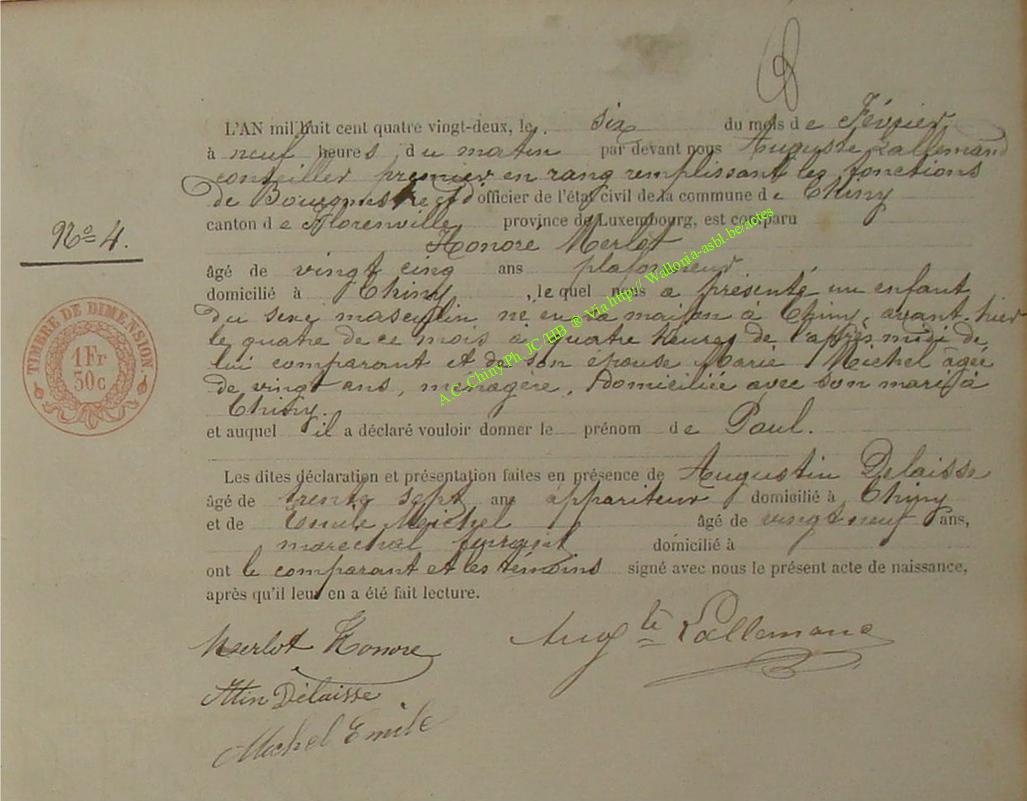 8
L'AN mil huit cent quatre vingt-deux, le six du mois de Février
à neuf heures, du matin par devant nous Auguste Lallemand
conseiller premier en rang remplissant les fonctions
de Bourgmestre et d'officier de l'état civil de la commune de Chiny
canton de Florenville province de Luxembourg, est comparu
Honoré Merlot
âgé de vingt cinq ans plafonneur
domicilié à Chiny, lequel nous a présenté un enfant
du sexe masculin né en sa maison à Chiny, avant hier
le quatre de ce mois à quatre heures de l'après midi de
lui comparant et de son épouse Marie Michel âgée
de vingt ans, ménagère, domiciliée avec son mari à
Chiny.
et auquel il a déclaré vouloir donner le prénom de Paul.
Les dites déclaration et présentation faites en présence de Augustin Delaisse
âgé de trente sept ans appariteur domicilié à Chiny
et de Emile Michel âgé de vingt neuf ans,
marechal ferrant domicilié à
ont le comparant et les témoins signé avec nous le présent acte de naissance,
après qu'il leur en a été fait lecture.
Merlot Honore
Augte Lallemand
Atin Délaisse
Michel Emile
No 4.
TIMBRE DE DIMENSION
1 Fr
50 c
A.C. Chiny Ph JC /HB ® Via http:// Wallonia-asbl.be/actes